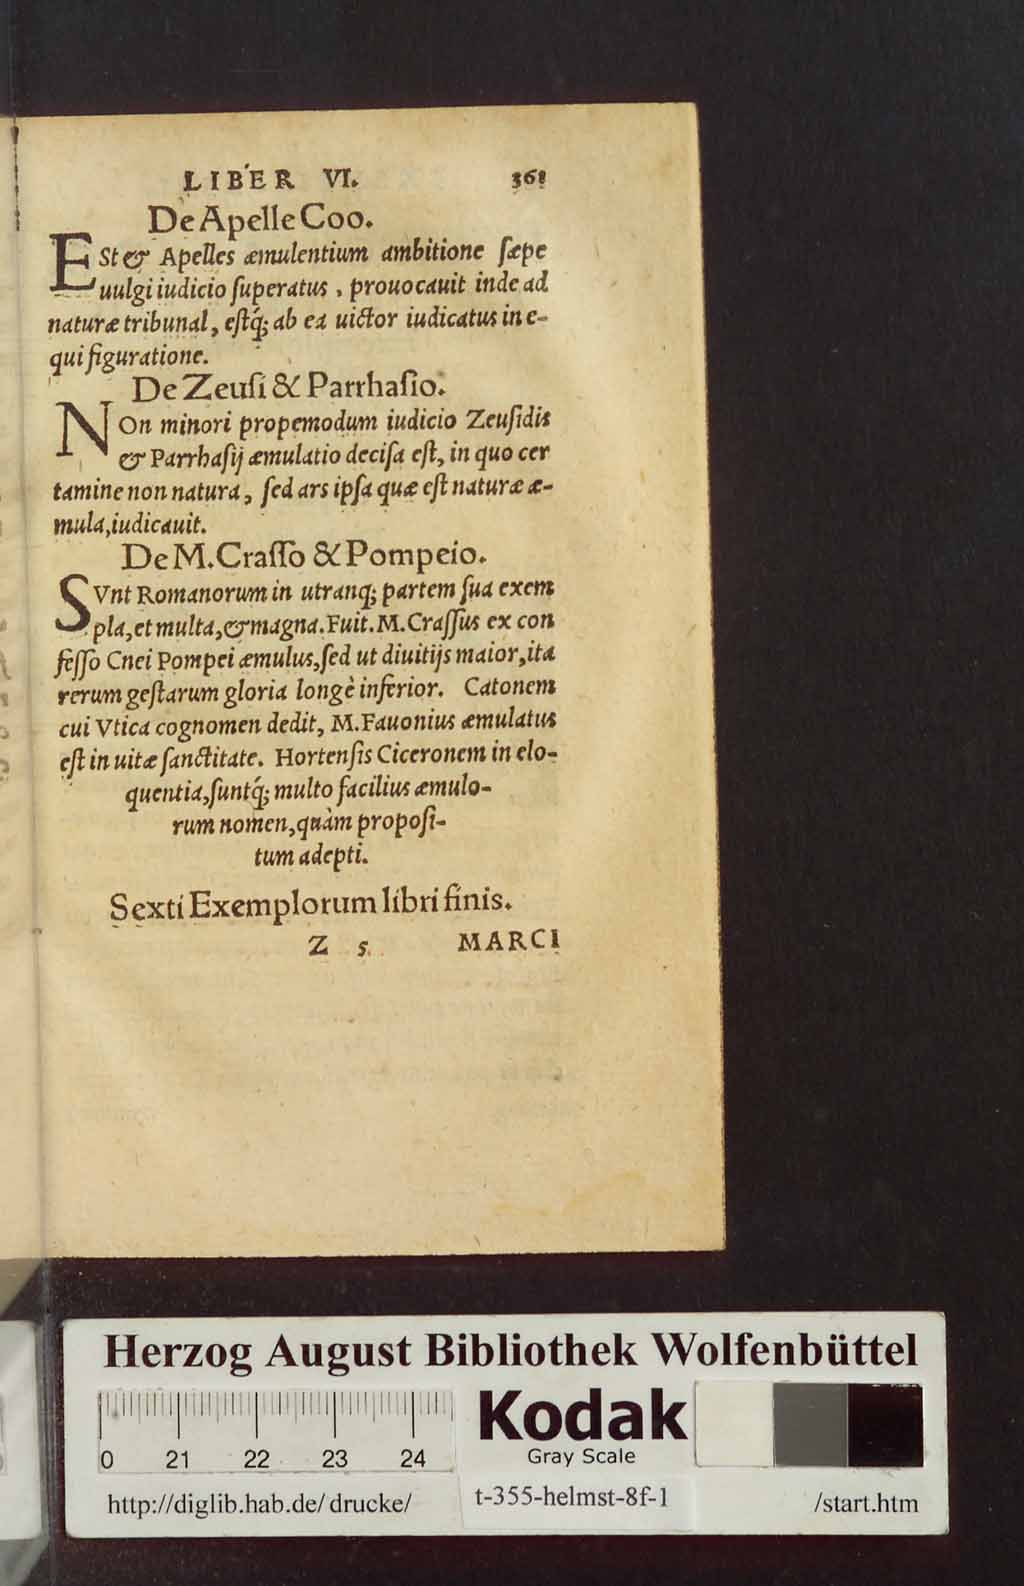 LIBER VI. 361
De Apelle Coo.
ESt & Apelles æmulentium ambitione sæpe
uulgi iudicio superatus, prouocauit inde ad
naturæ tribunal, estq́; ab ea uictor iudicatus in e-
qui figuratione.
De Zeusi & Parrhasio.
NOn minori propemodum iudicio Zeusidis
& Parrhasij æmulatio decisa est, in quo cer
tamine non natura, sed ars ipsa quæ est naturæ æ-
mula, iudicauit.
De M. Crasso & Pompeio.
SVnt Romanorum in utranq; partem sua exem
pla, et multa, & magna. Fuit. M. Crassus ex con
fesso Cnei Pompei æmulus, sed ut diuitijs maior, ita
rerum gestarum gloria longè inferior. Catonem
cui Vtica cognomen dedit, M. Fauonius æmulatus
est in uitæ sanctitate. Hortensis Ciceronem in elo-
quentia, suntq́; multo facilius æmulo-
rum nomen, quàm proposi-
tum adepti.
Sexti Exemplorum libri finis.
Z 5. MARCI
Herzog August Bibliothek Wolfenbüttel
0 21 22 23 24
Kodak
Gray Scale
http://diglib.hab.de/drucke/ t-355-helmst-8f-1 /start.htm